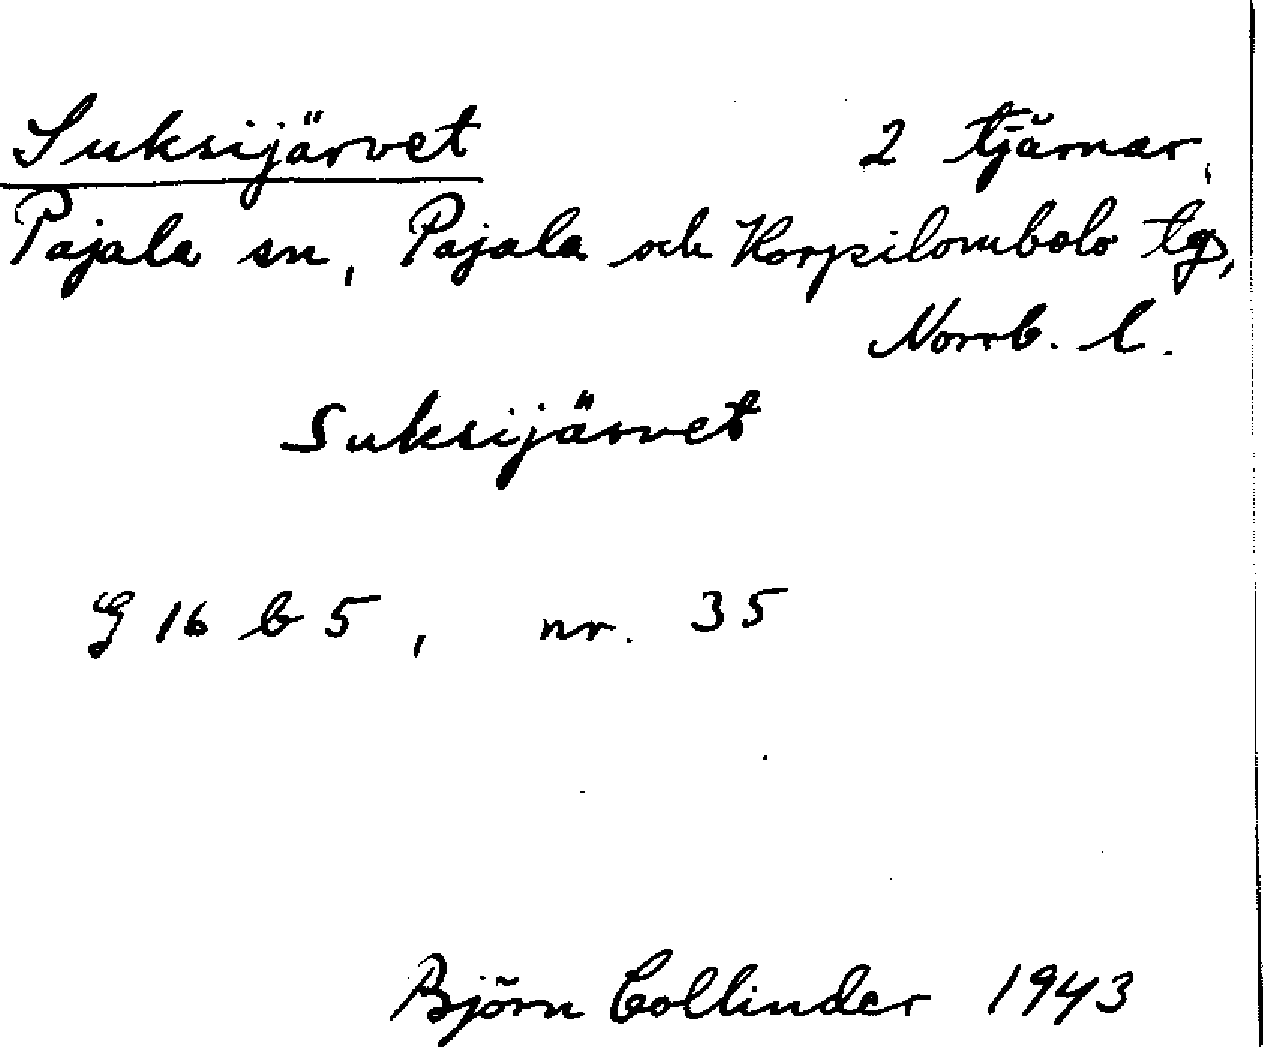 Suksijärvet 2 tjärnar,
Pajala sn, Pajala och Korpilombolo tg,
Norrb. l.
Suksijärvet
G 16 b 5, nr. 35
Björn Collinder 1943